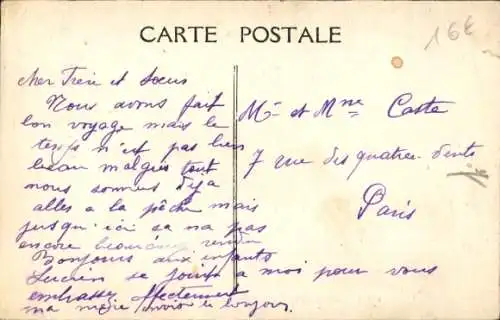 CARTE POSTALE
16€
cher Frere et Soeur
Nous avons fait
bon voyage mais le
temps n'est pas bien
beau malgres tout
nous sommes deja
alles a la pêche mais
jusqu'ici sa na pas
encore
Bonjours aux enfants
Lucien se joint a moi pour vous
embrasser affectement
ma mère envoie le bonjour.
Mr et Mme Caste
7 rue des quatre vents
Paris